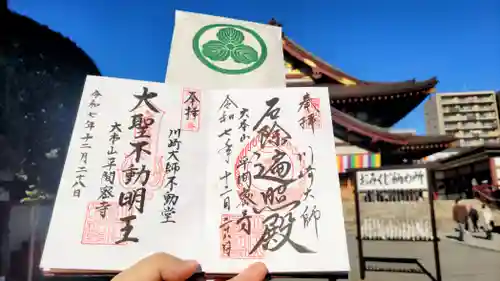 奉拝
川崎大師
厄除遍照殿
大本山平間密寺
令和七年十二月二八日
奉拝
川崎大師不動堂
大聖不動明王
大本山平間密寺
令和七年十二月二八日
おみくじ納め所